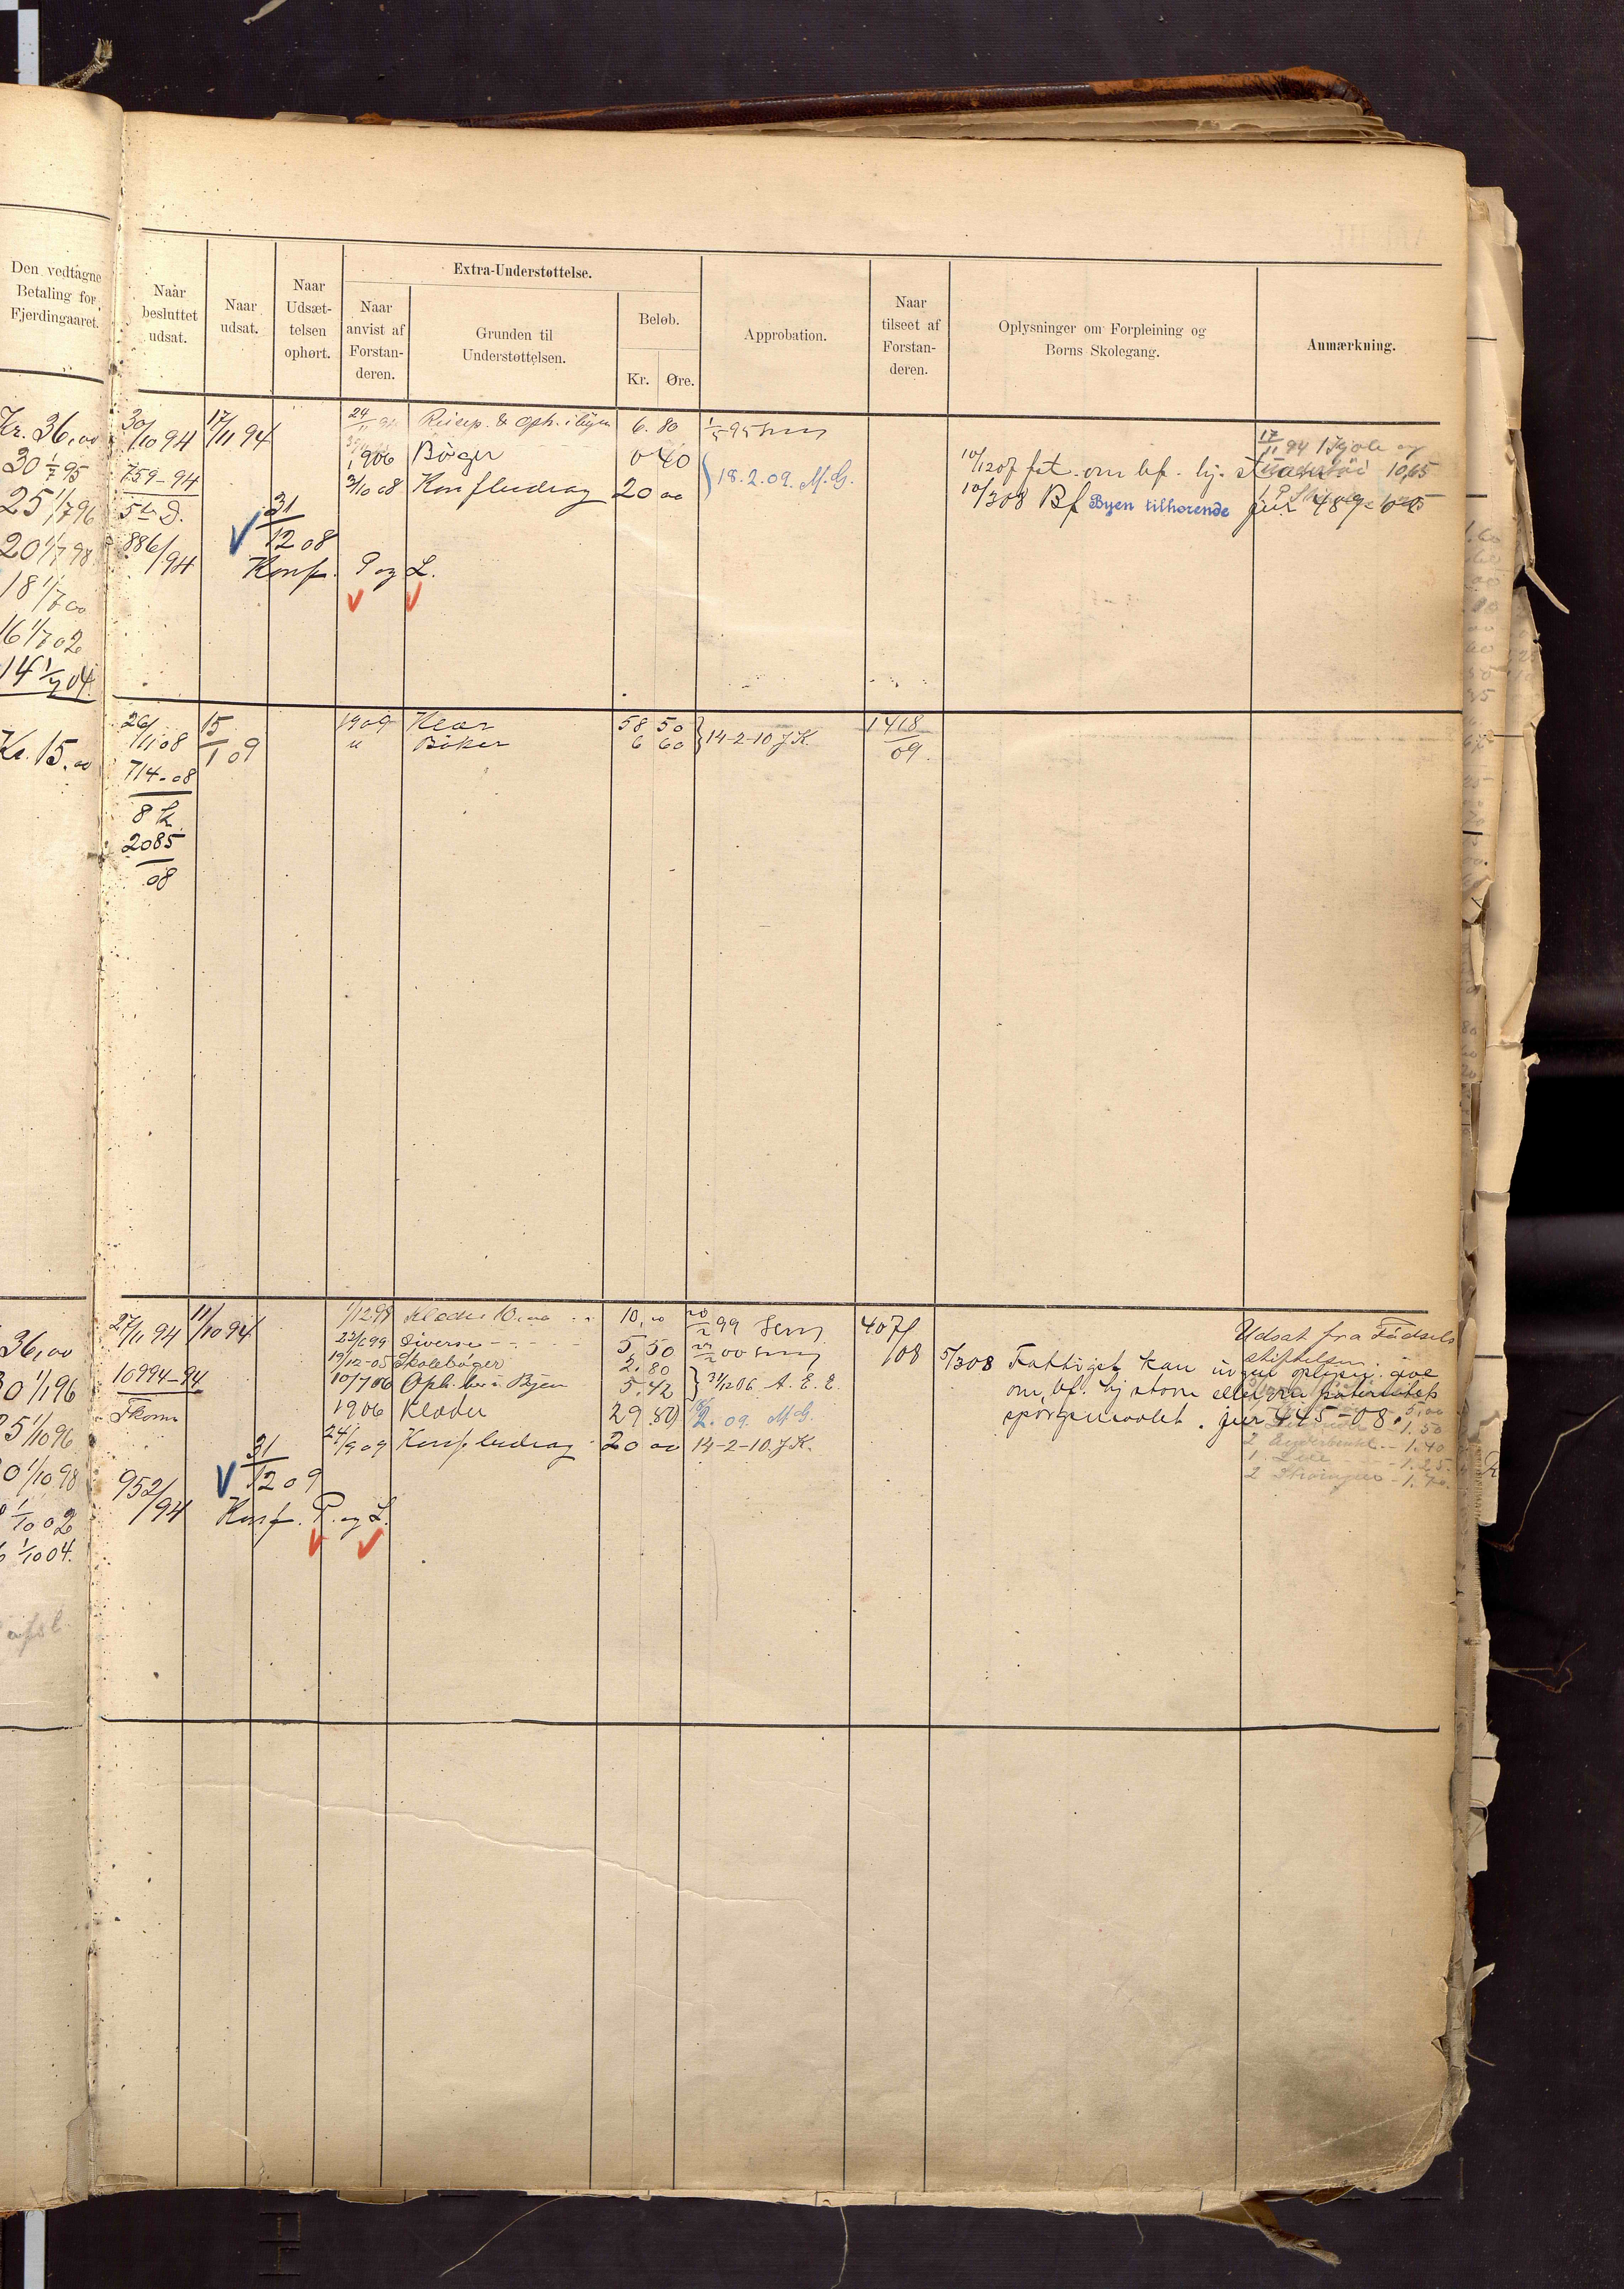 Den vedtagne
Betaling for
Fjerdingaaret.
Naar
besluttet
udsat.
Naar
udsat.
Naar
Udsæt-
telsen
ophørt.
Extra-Understøttelse.
Naar
anvist af
Forstan-
deren.
Grunden til
Understøttelsen.
Beløb.
Kr. Øre.
Approbation.
Naar
tilseet af
Forstan-
deren.
Oplysninger om Forpleining og
Børns Skolegang.
Anmærkning.
Kr. 36,00
30 1/7 95
25 1/7 96
20 1/7 98
18 1/7 00
16 1/7 02
14 1/7 04
30/10 94
759-94
5te D.
886/94
17/11 94
31/12 08
Konf. P og L.
24/11 94 Reisep. & Oph. i byen 6.80
1906 Bøger 0 40
3/10 08 Konfbidrag 20 00
1/5 95
18.2.09. M.G.
10/12 07 fat. om bf. hj.
10/3 08 Bf Byen tilhørende jur 489-08
17/11 94 1 Kjole og
10,65
Kr. 15,00
26/11 08
714-08
8 k
2085
08
15/1 09
1909 Klær 58 50
" Bøker 6 60
14-2-10 J.K.
1418
09.
36,00
30 1/1 96
25 1/10 96
20 1/10 98
1/10 02
1/10 04.
27/11 94
10994-94
952/94
11/10 94
31/12 09
Konf. P. og L.
1/12 98 Klæder 10,00 10,00
22/6 99 Diverse 5,50
19/12-05 Skolebøger 2.80
10/7 06 Oph. her i Byen 5.42
1906 Klæder 29.80
24/9 09 Konfbidrag 20 00
20/2 99
22/2 00
31/12 06 A.E.E.
18/2.09. M.G.
14-2-10. J.K.
407/08
5/3 08 Fattigst kan ingen oplysn. give
om bf. hj. stavn eller fra paternitets
spørgsmaalet. jur 445-08.
Udsat fra Fødsels
stiftelsen.
5,00
1.50
2 1.40
1 1.25
2 Strømper 1.70